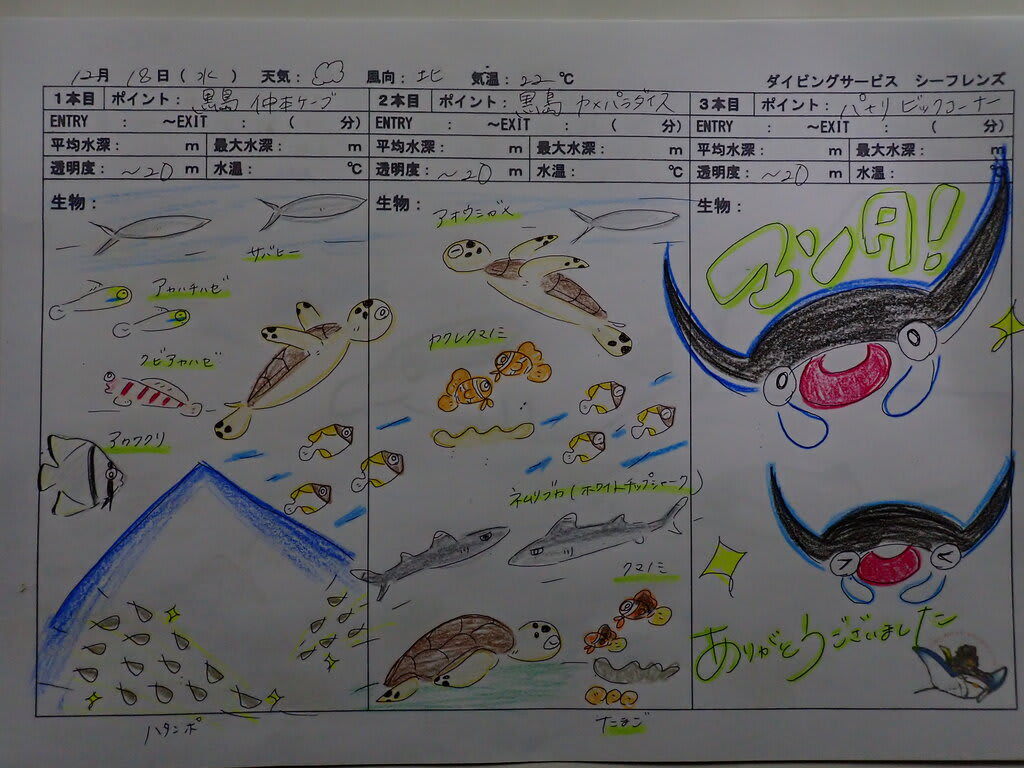 12月 18日(水) 天気: 風向:北 気温:22℃
ダイビングサービス シーフレンズ
1本目 ポイント: 黒島 仲本ケーブ
ENTRY : ~EXIT : ( 分)
平均水深: m 最大水深: m
透明度: ~20 m 水温: ℃
生物:
サバヒー
アカハチハゼ
クビアカハゼ
ハタンポ
2本目 ポイント: 黒島 カメパラダイス
ENTRY : ~EXIT : ( 分)
平均水深: m 最大水深: m
透明度: ~20 m 水温: ℃
生物:
アオウミガメ
カクレクマノミ
ネムリブカ(ホワイトチップシャーク)
クマノミ
たまご
3本目 ポイント: パナリ ビックコーナー
ENTRY : ~EXIT : ( 分)
平均水深: m 最大水深: m
透明度: ~20 m 水温: ℃
生物:
ありがとうございました